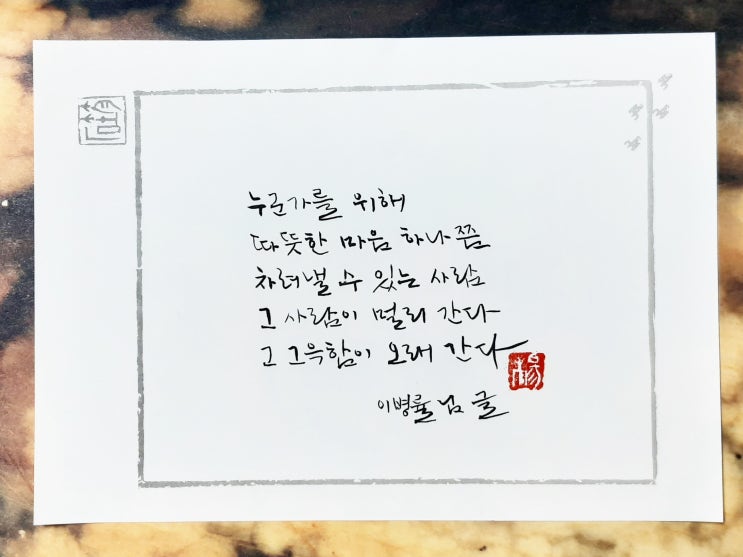 누군가를 위해
따뜻한 마음 하나쯤
차려낼 수 있는 사람
그 사람이 멀리 간다
그 그윽함이 오래 간다
이병률 님 글